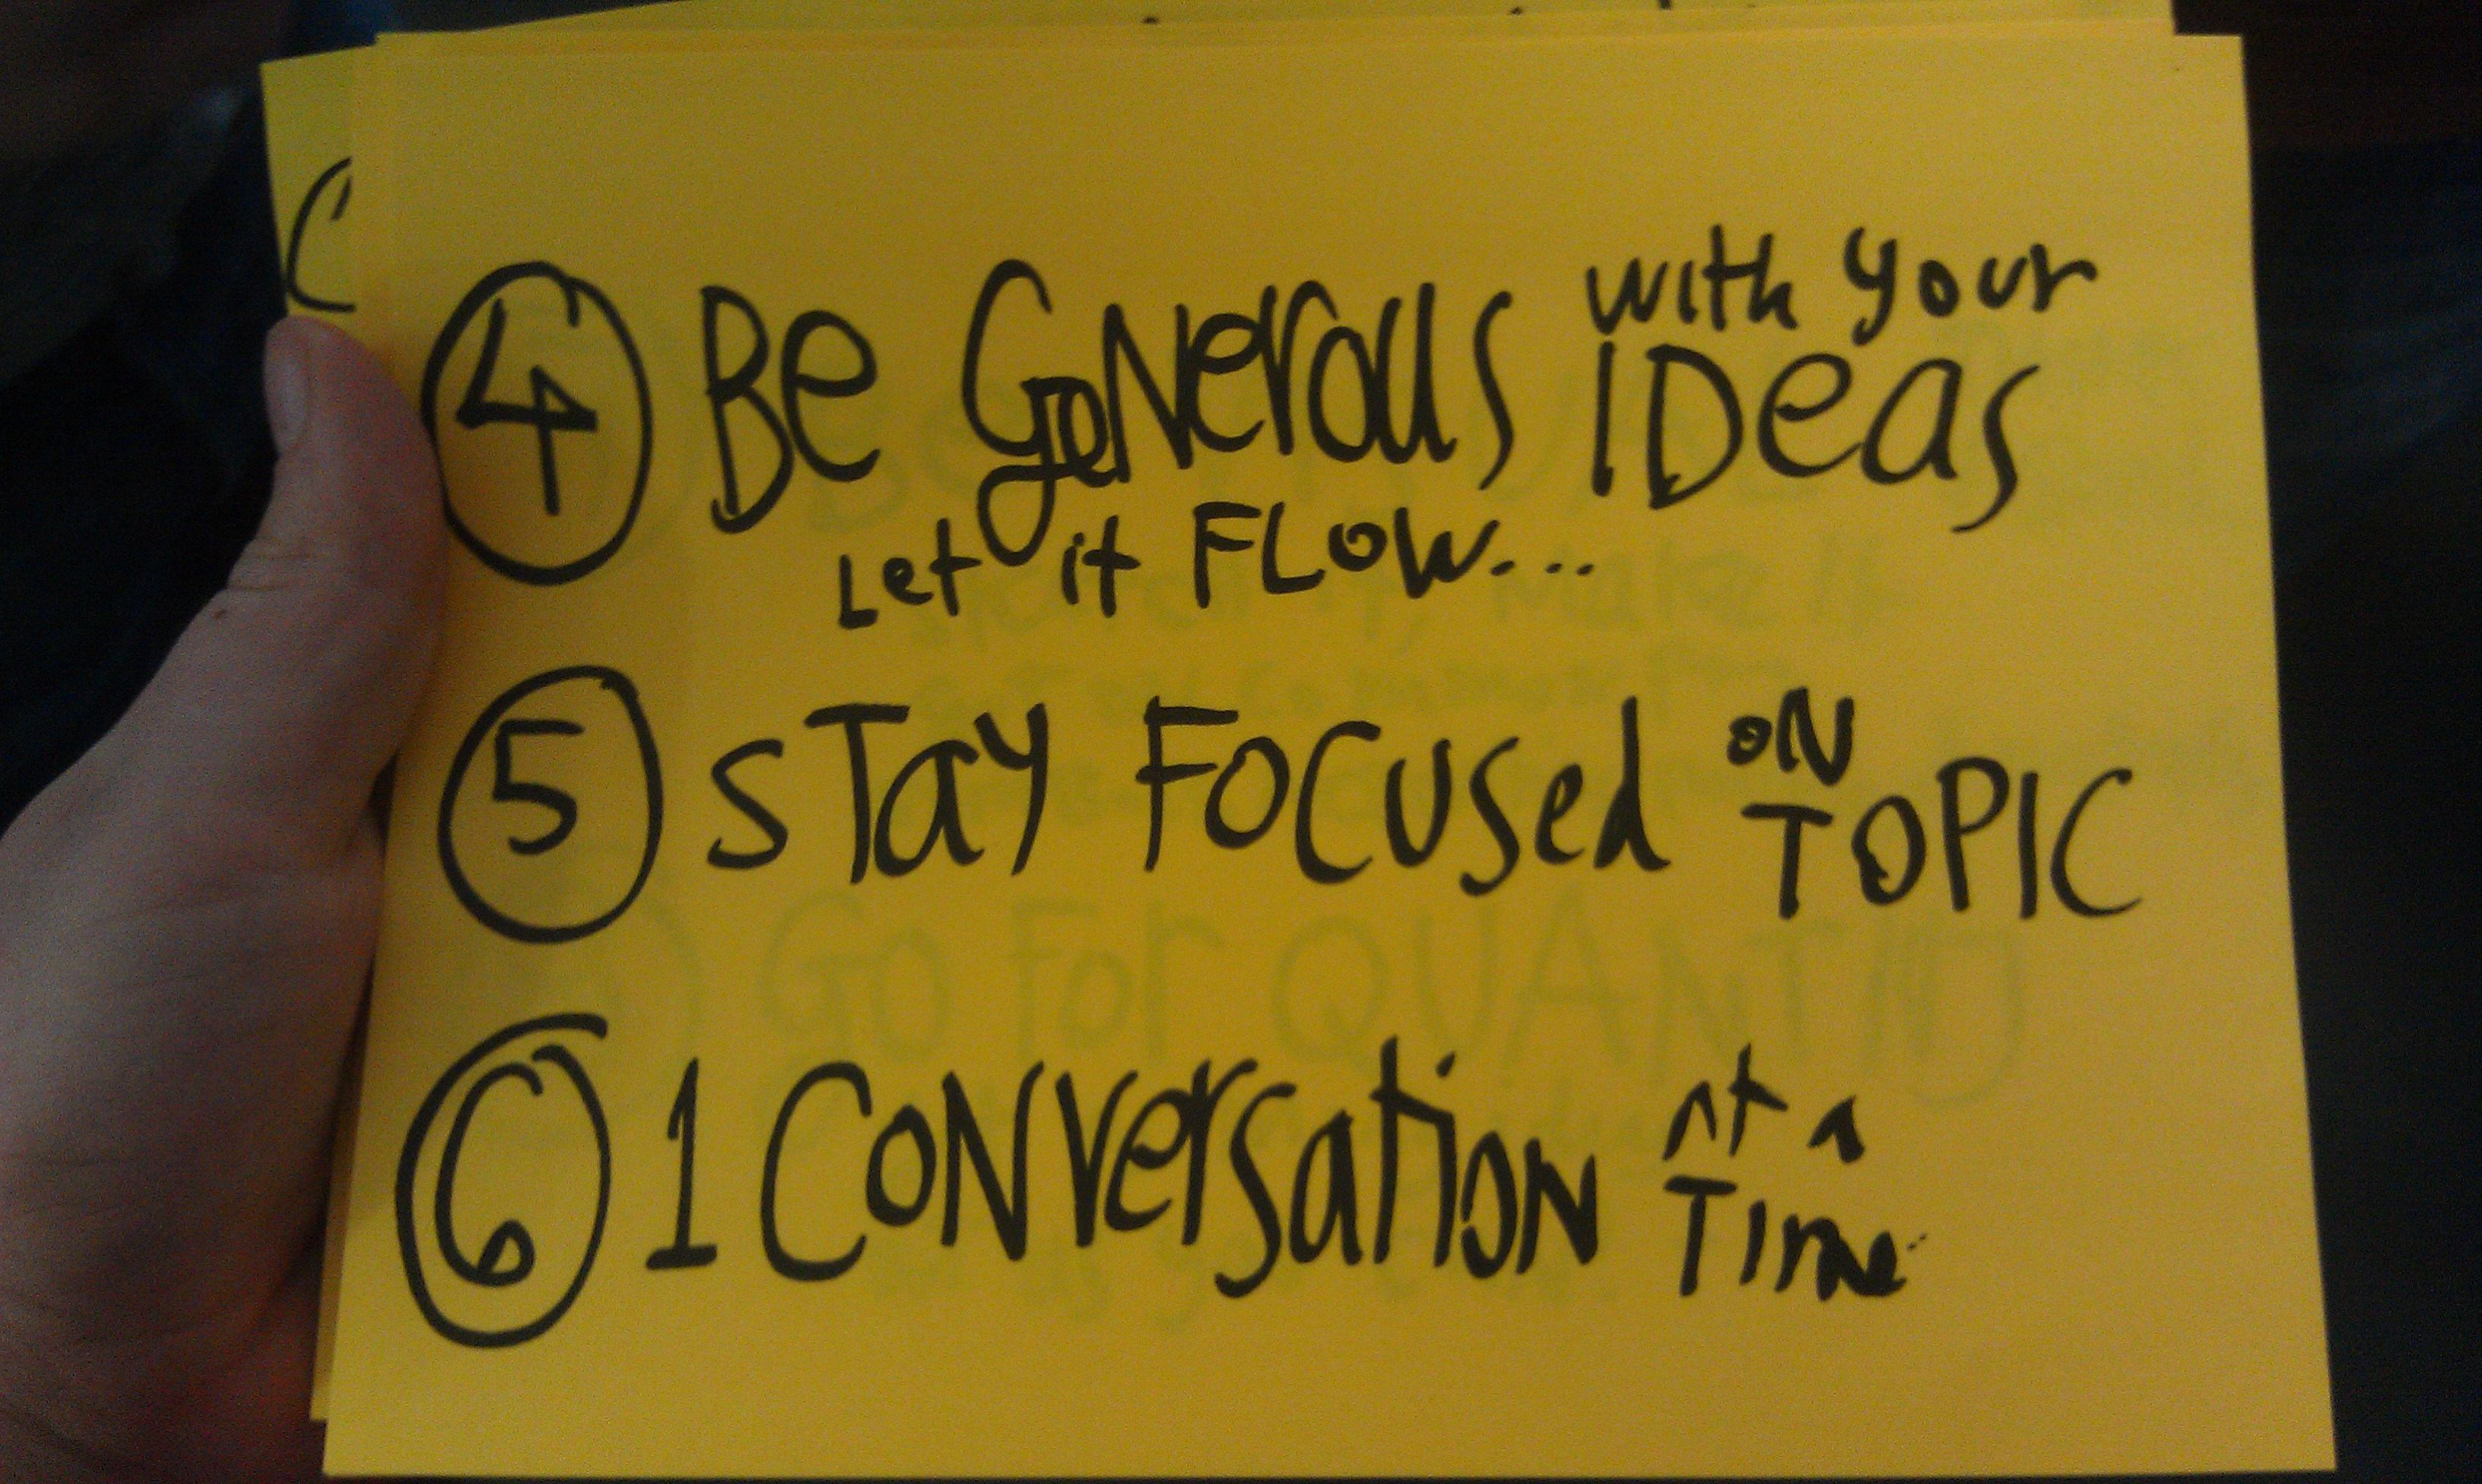 4 Be GeNerous with your IDeas
Let it FLow...
5 sTay Focused oN TOPIC
6 1 CoNversation At A Time
Go For QUANTITY